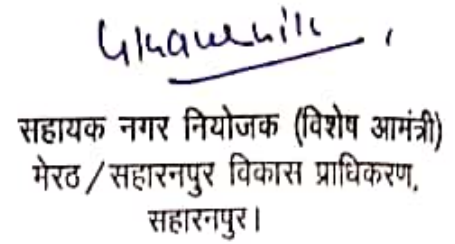 सहायक नगर नियोजक (विशेष आमंत्री)
मेरठ/सहारनपुर विकास प्राधिकरण,
सहारनपुर।